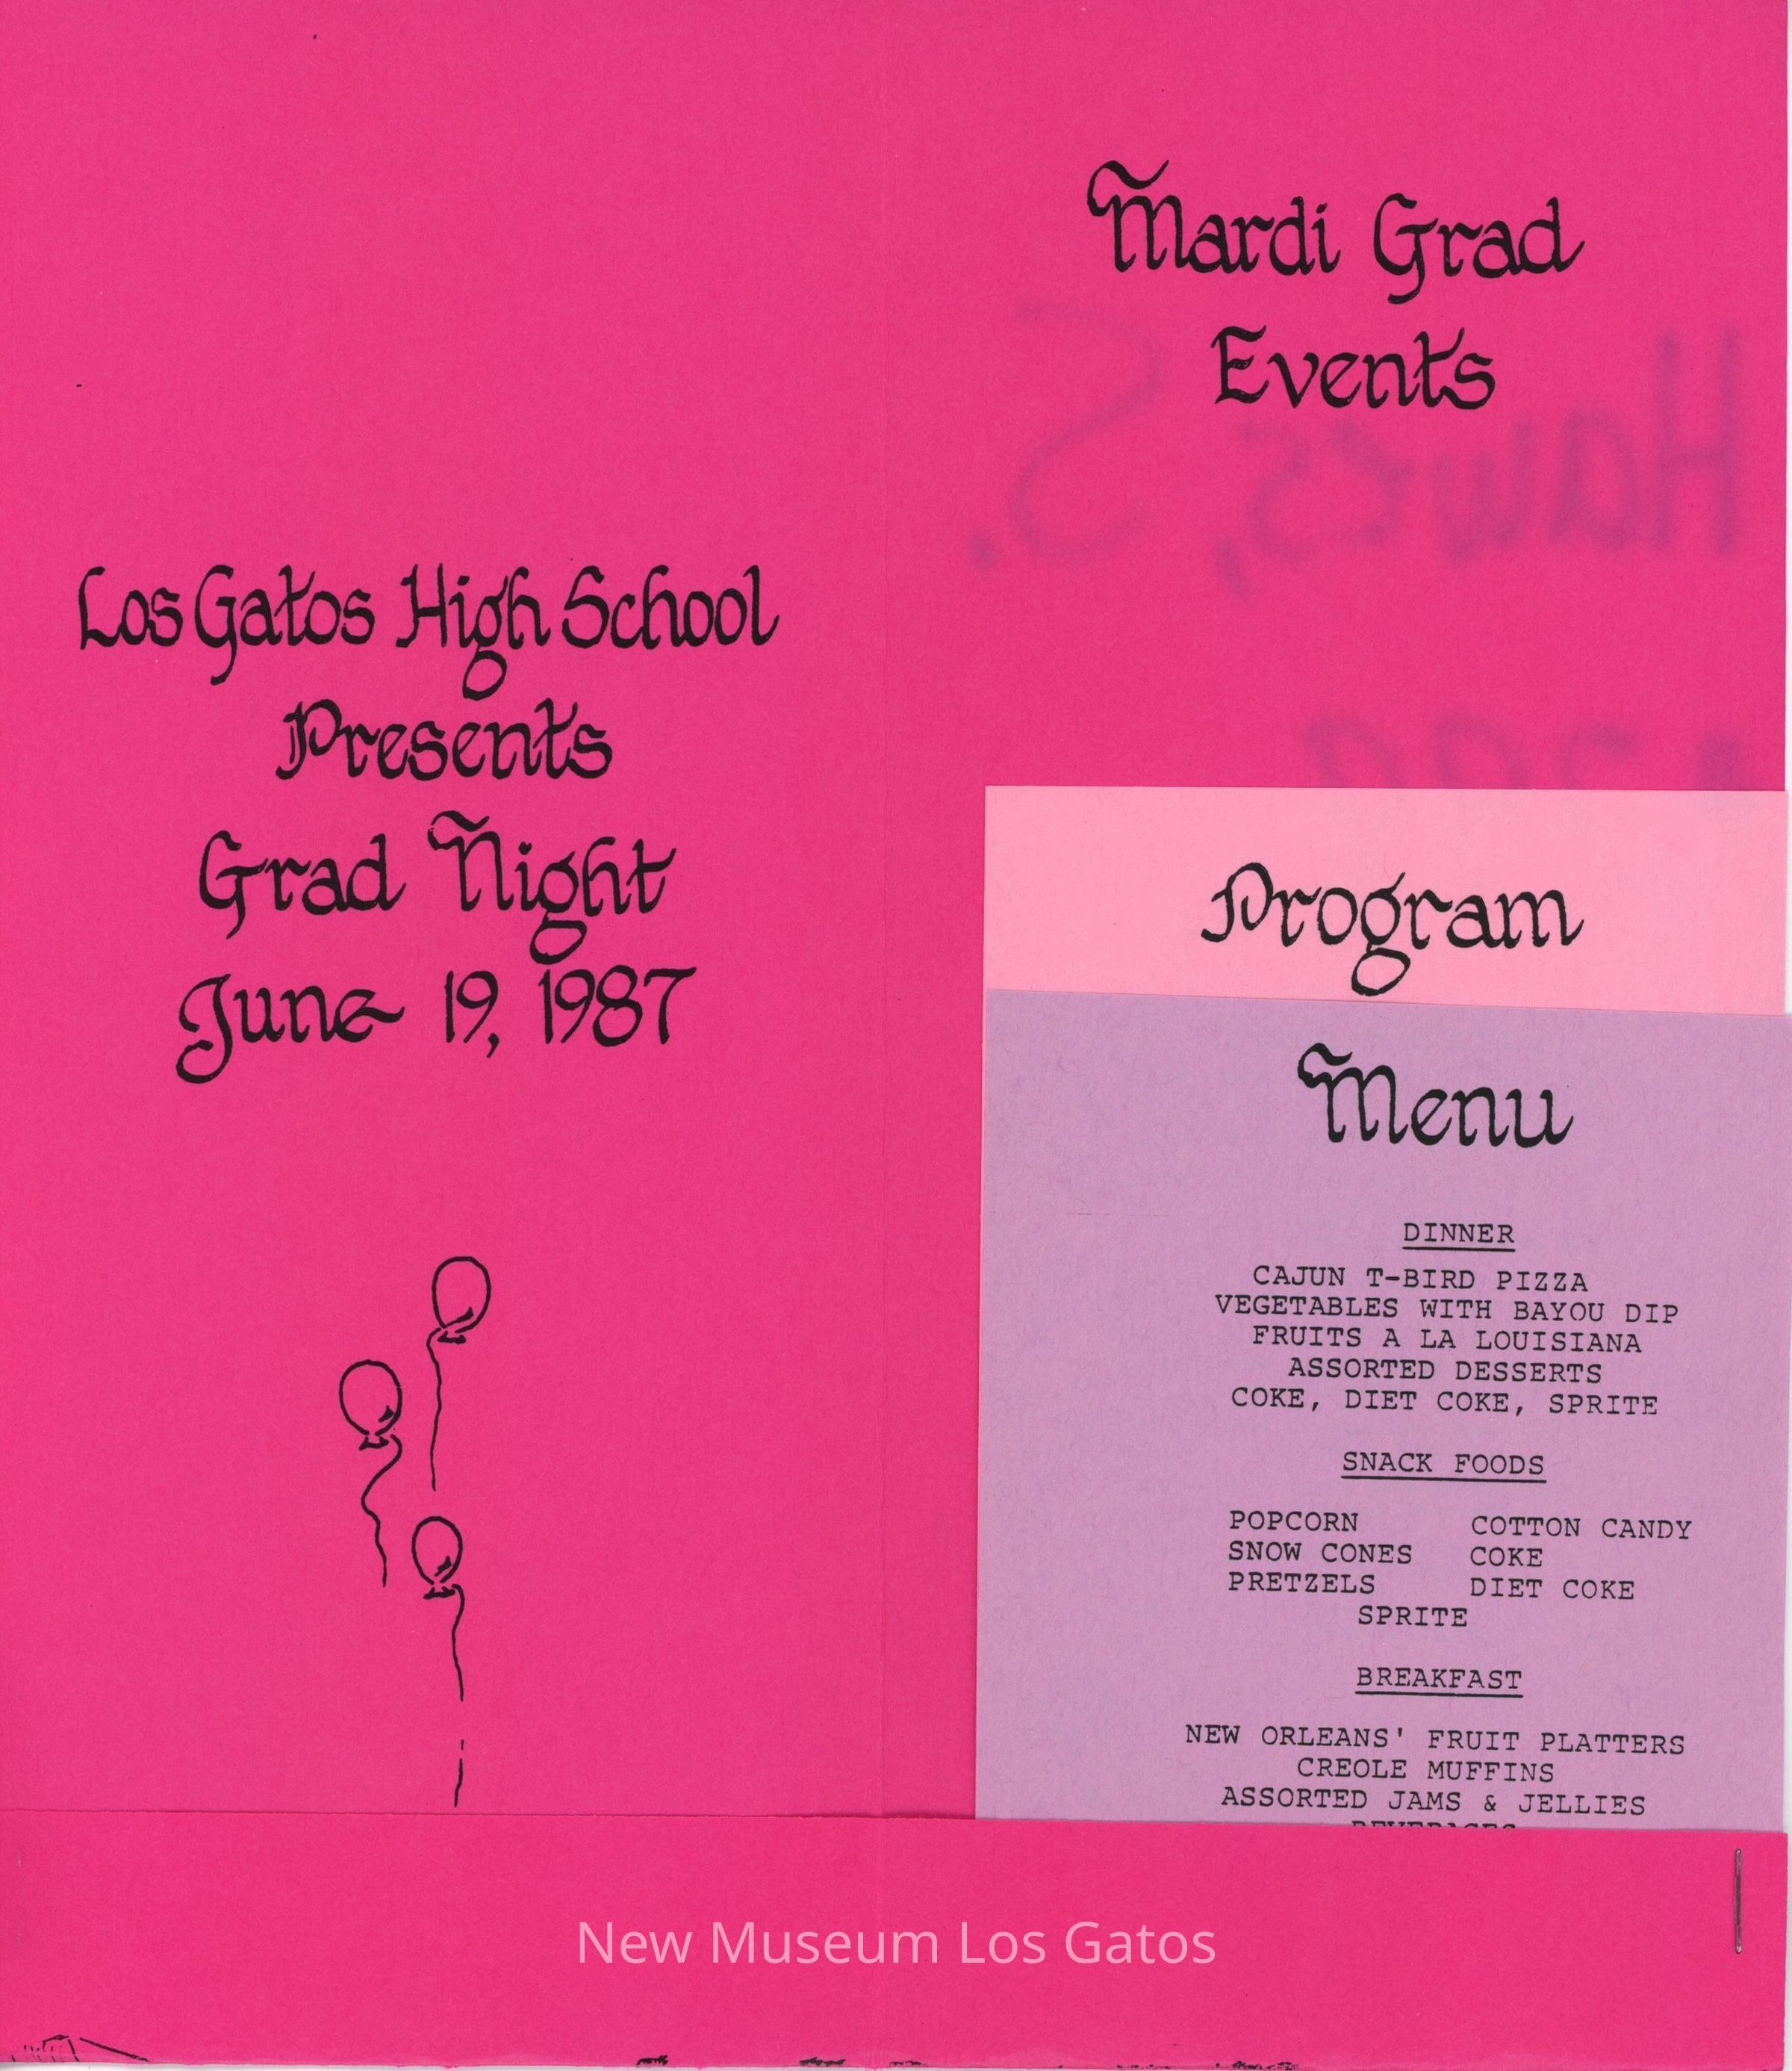 Los Gatos High School
Presents
Grad Night
June 19, 1987
Mardi Grad
Events
Hawes, S.
Program
Menu
DINNER
CAJUN T-BIRD PIZZA
VEGETABLES WITH BAYOU DIP
FRUITS A LA LOUISIANA
ASSORTED DESSERTS
COKE, DIET COKE, SPRITE
SNACK FOODS
POPCORN COTTON CANDY
SNOW CONES COKE
PRETZELS DIET COKE
SPRITE
BREAKFAST
NEW ORLEANS' FRUIT PLATTERS
CREOLE MUFFINS
ASSORTED JAMS & JELLIES
BEVERAGES
New Museum Los Gatos